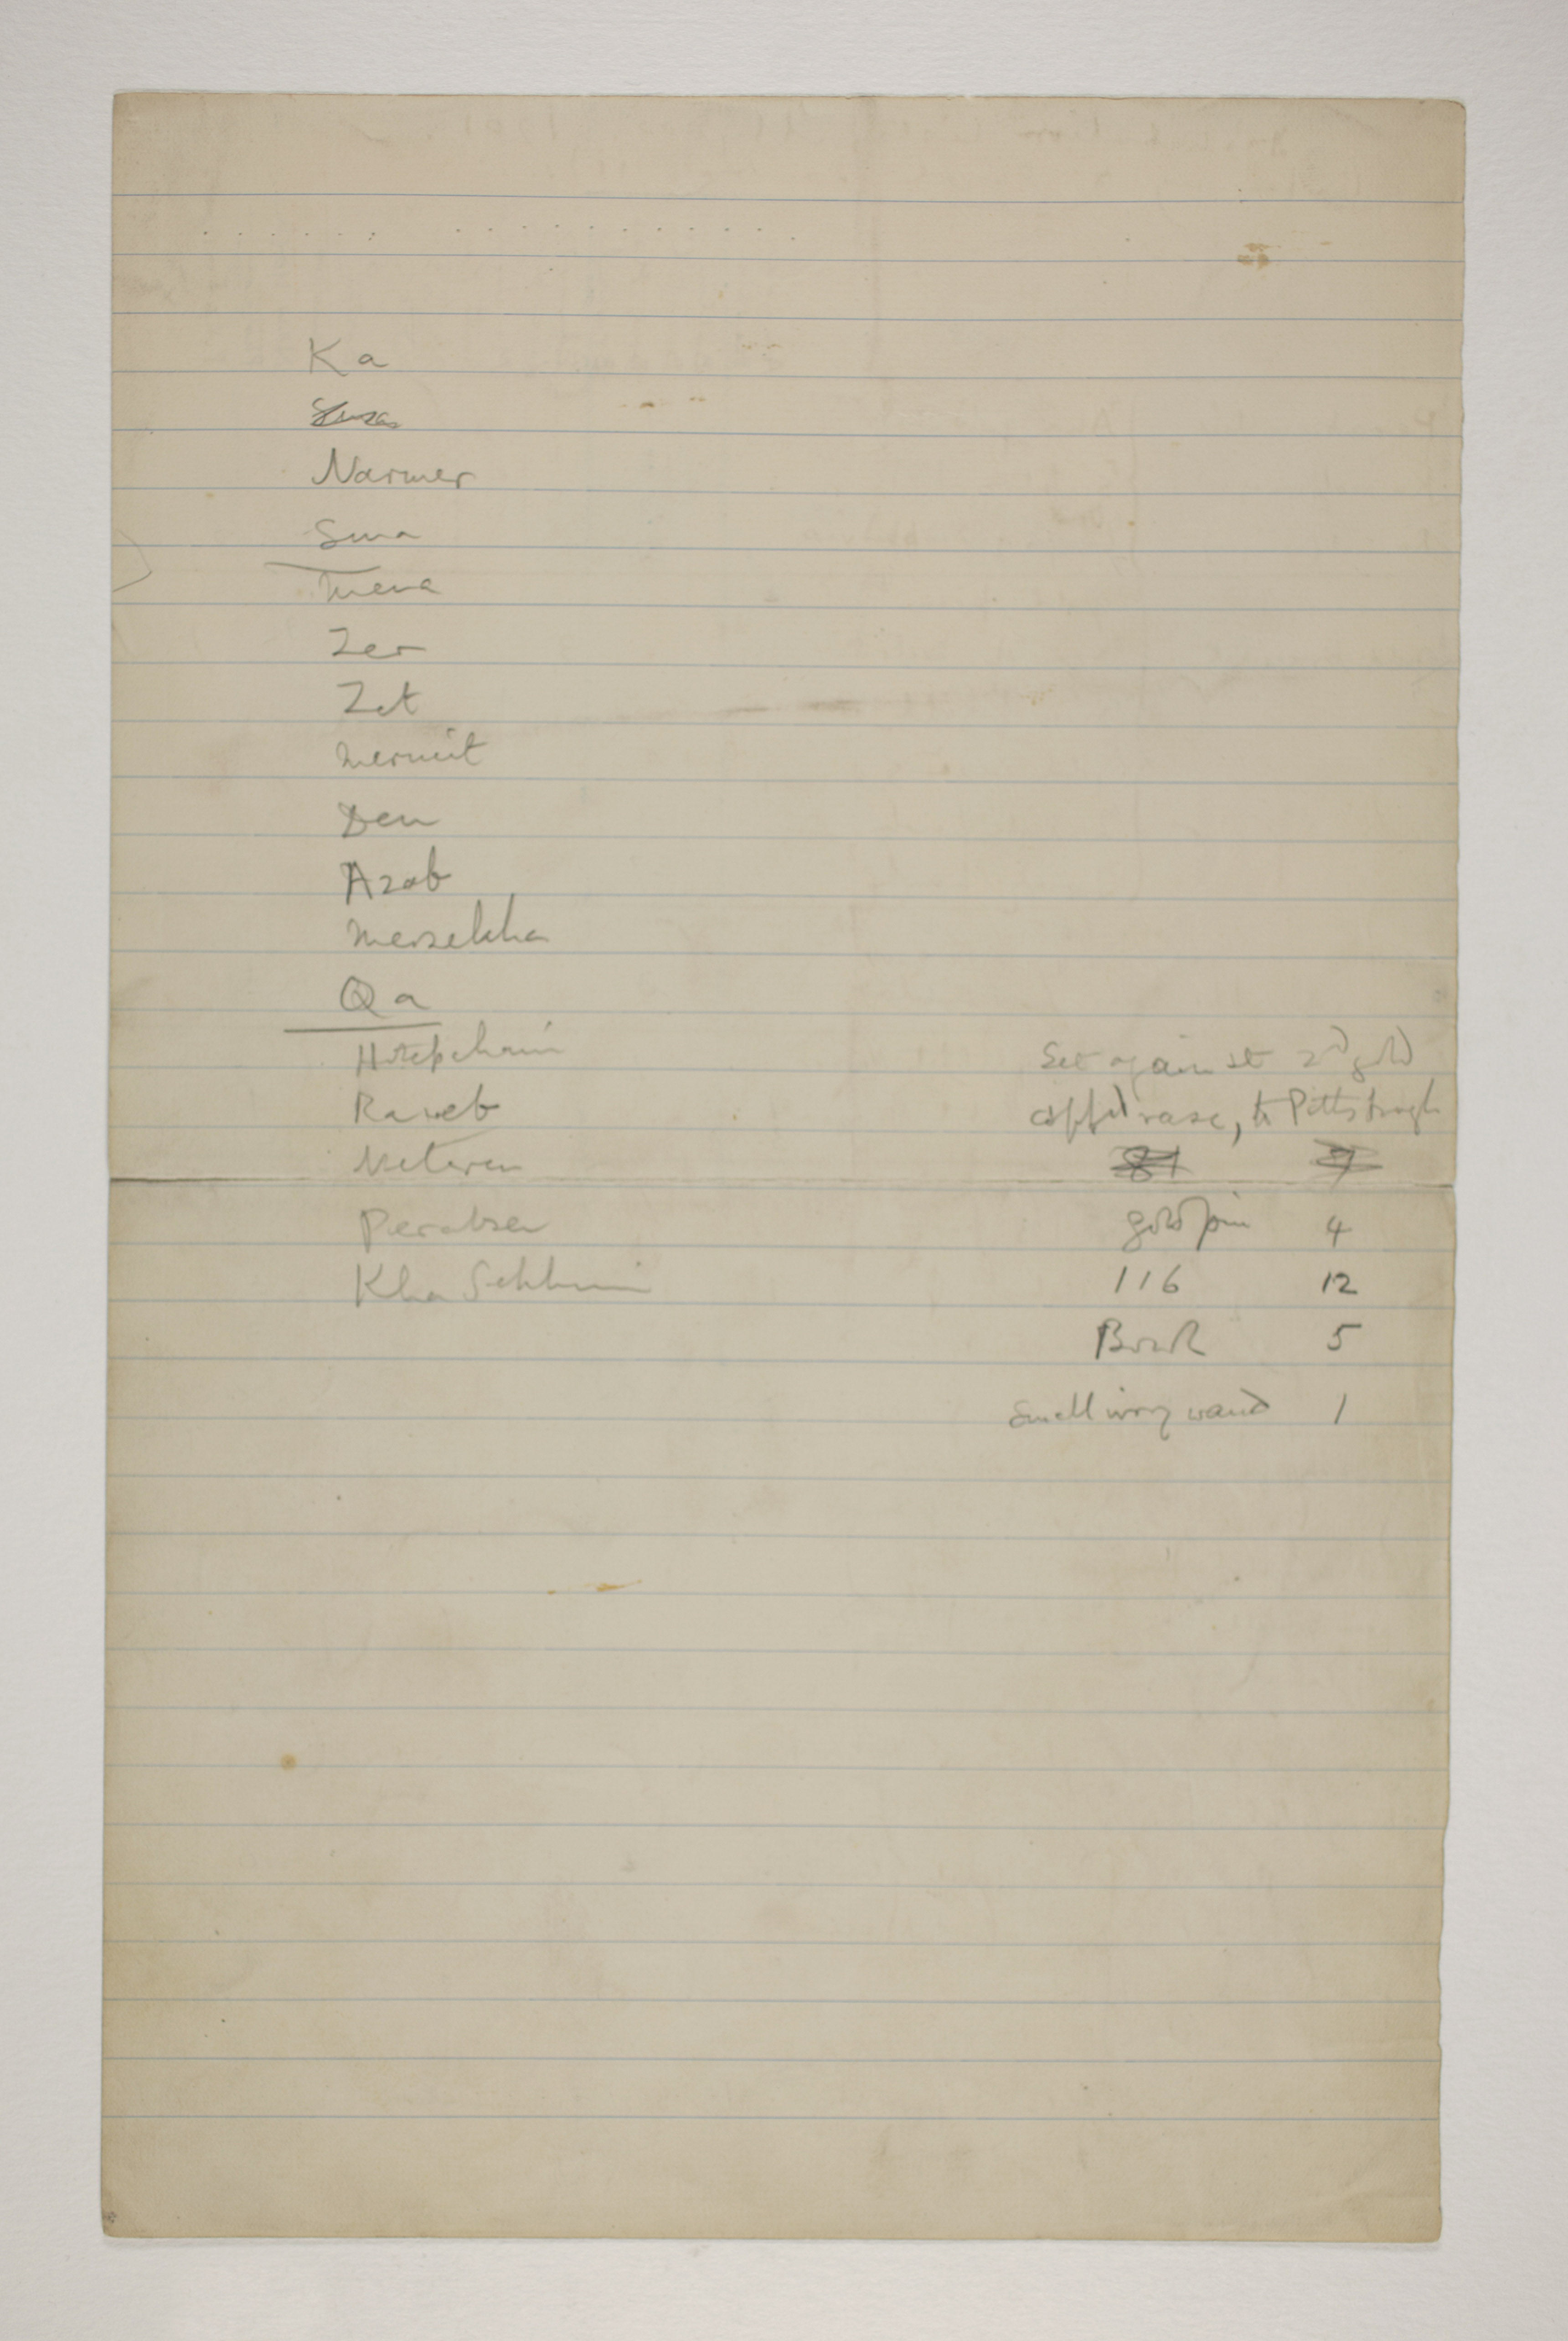 Ka
Narmer
Sma
Mena
Zer
Zet
Merneit
Den
Azab
Mersekha
Qa
Hotepahaui
Raneb
Neteren
Perabsen
Kha Sekhmui
Set against 2d gold
capped vase, to Pittsburgh
81 7
gold pin 4
116 12
Bowl 5
Small ivory wand 1